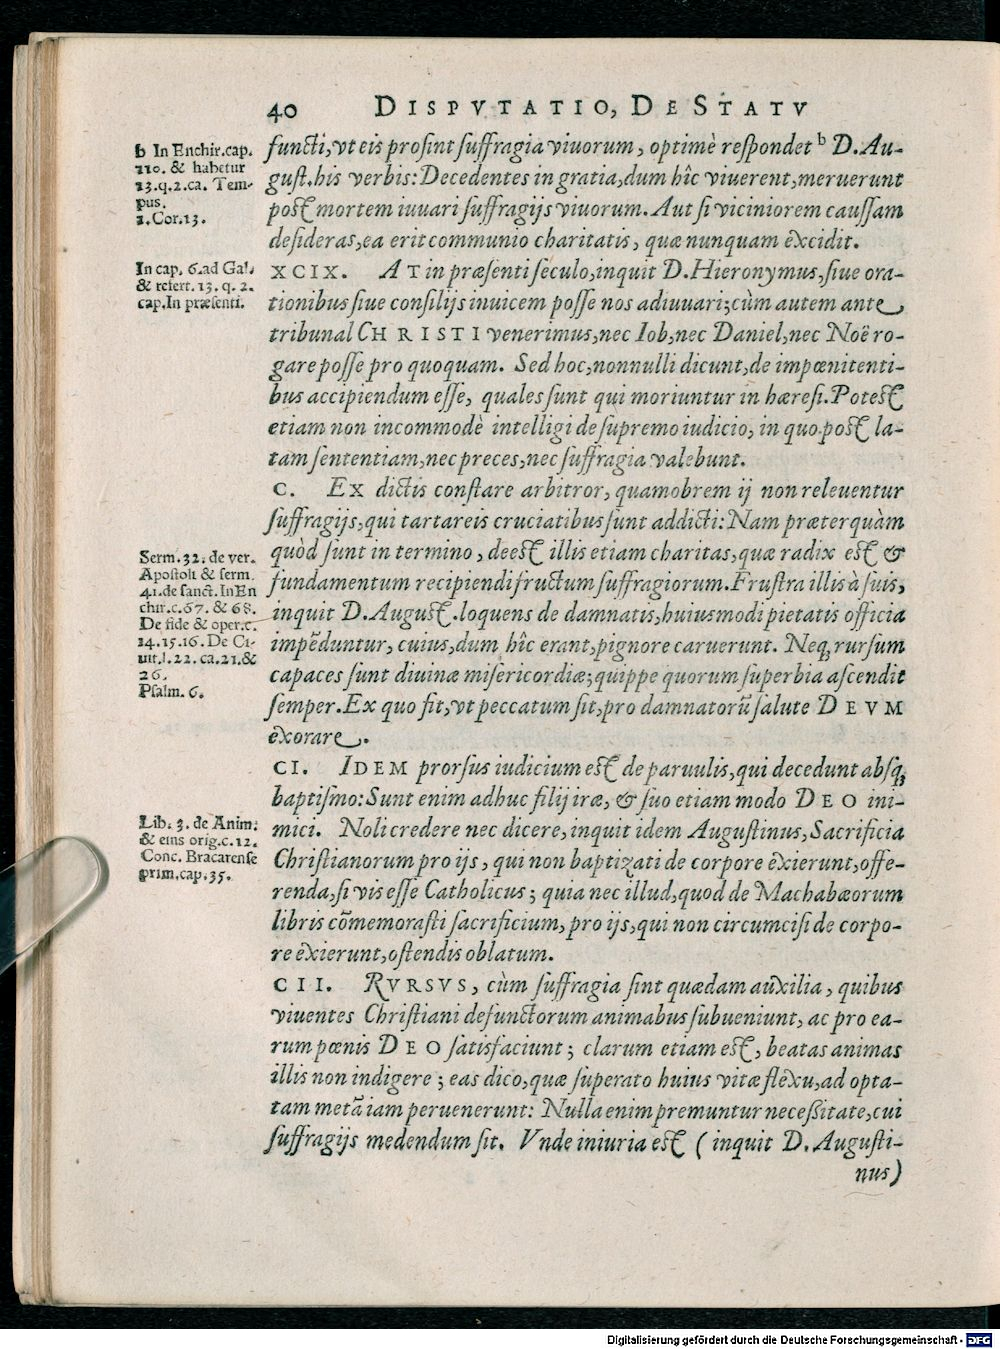 40 DISPVTATIO, DE STATV
b In Enchir.cap.
110. & habetur
13.q.2.ca. Tem-
pus.
1.Cor.13.
functi,vt eis prosint suffragia viuorum, optimè respondet b D. Au-
gust.his verbis: Decedentes in gratia,dum hîc viuerent,meruerunt
post mortem iuuari suffragijs viuorum. Aut si viciniorem caussam
desideras,ea erit communio charitatis, quæ nunquam excidit.
In cap. 6.ad Gal.
& refert.13. q. 2.
cap.In præsenti.
XCIX. AT in præsenti seculo,inquit D.Hieronymus,siue ora-
tionibus siue consilijs inuicem posse nos adiuuari;cùm autem ante
tribunal CHRISTI venerimus,nec Iob,nec Daniel,nec Noë ro-
gare posse pro quoquam. Sed hoc,nonnulli dicunt,de impœnitenti-
bus accipiendum esse, quales sunt qui moriuntur in hæresi. Potest
etiam non incommodè intelligi de supremo iudicio, in quo post la-
tam sententiam,nec preces,nec suffragia valebunt.
C. EX dictis constare arbitror, quamobrem ij non releuentur
suffragijs,qui tartareis cruciatibus sunt addicti: Nam præterquàm
quòd sunt in termino, deest illis etiam charitas,quæ radix est &
fundamentum recipiendi fructum suffragiorum. Frustra illis à suis,
inquit D. August.loquens de damnatis,huiusmodi pietatis officia
impẽduntur, cuius,dum hîc erant,pignore caruerunt. Neq; rursum
capaces sunt diuinæ misericordiæ;quippe quorum superbia ascendit
semper. Ex quo fit,vt peccatum sit,pro damnatorũ salute DEVM
exorare.
Serm.32. de ver.
Apostoli & serm.
41.de sanct. In En
chir.c.67. & 68.
De fide & oper.c.
14.15.16. De Ci-
uit.l.22. ca.21.&
26.
Psalm. 6.
CI. IDEM prorsus iudicium est de paruulis,qui decedunt absq;
baptismo: Sunt enim adhuc filij iræ, & suo etiam modo DEO ini-
mici. Noli credere nec dicere,inquit idem Augustinus, Sacrificia
Christianorum pro ijs, qui non baptizati de corpore exierunt,offe-
renda,si vis esse Catholicus; quia nec illud,quod de Machabæorum
libris cõmemorasti sacrificium, pro ijs,qui non circumcisi de corpo-
re exierunt,ostendis oblatum.
Lib. 3. de Anim.
& eius orig.c.12.
Conc. Bracarense
prim.cap.35.
CII. RVRSVS, cùm suffragia sint quædam auxilia, quibus
viuentes Christiani defunctorum animabus subueniunt, ac pro ea-
rum pœnis DEO satisfaciunt; clarum etiam est, beatas animas
illis non indigere; eas dico,quæ superato huius vitæ flexu,ad opta-
tam metã iam peruenerunt: Nulla enim premuntur necessitate,cui
suffragijs medendum sit. Vnde iniuria est (inquit D. Augusti-
nus)
Digitalisierung gefördert durch die Deutsche Forschungsgemeinschaft - DFG